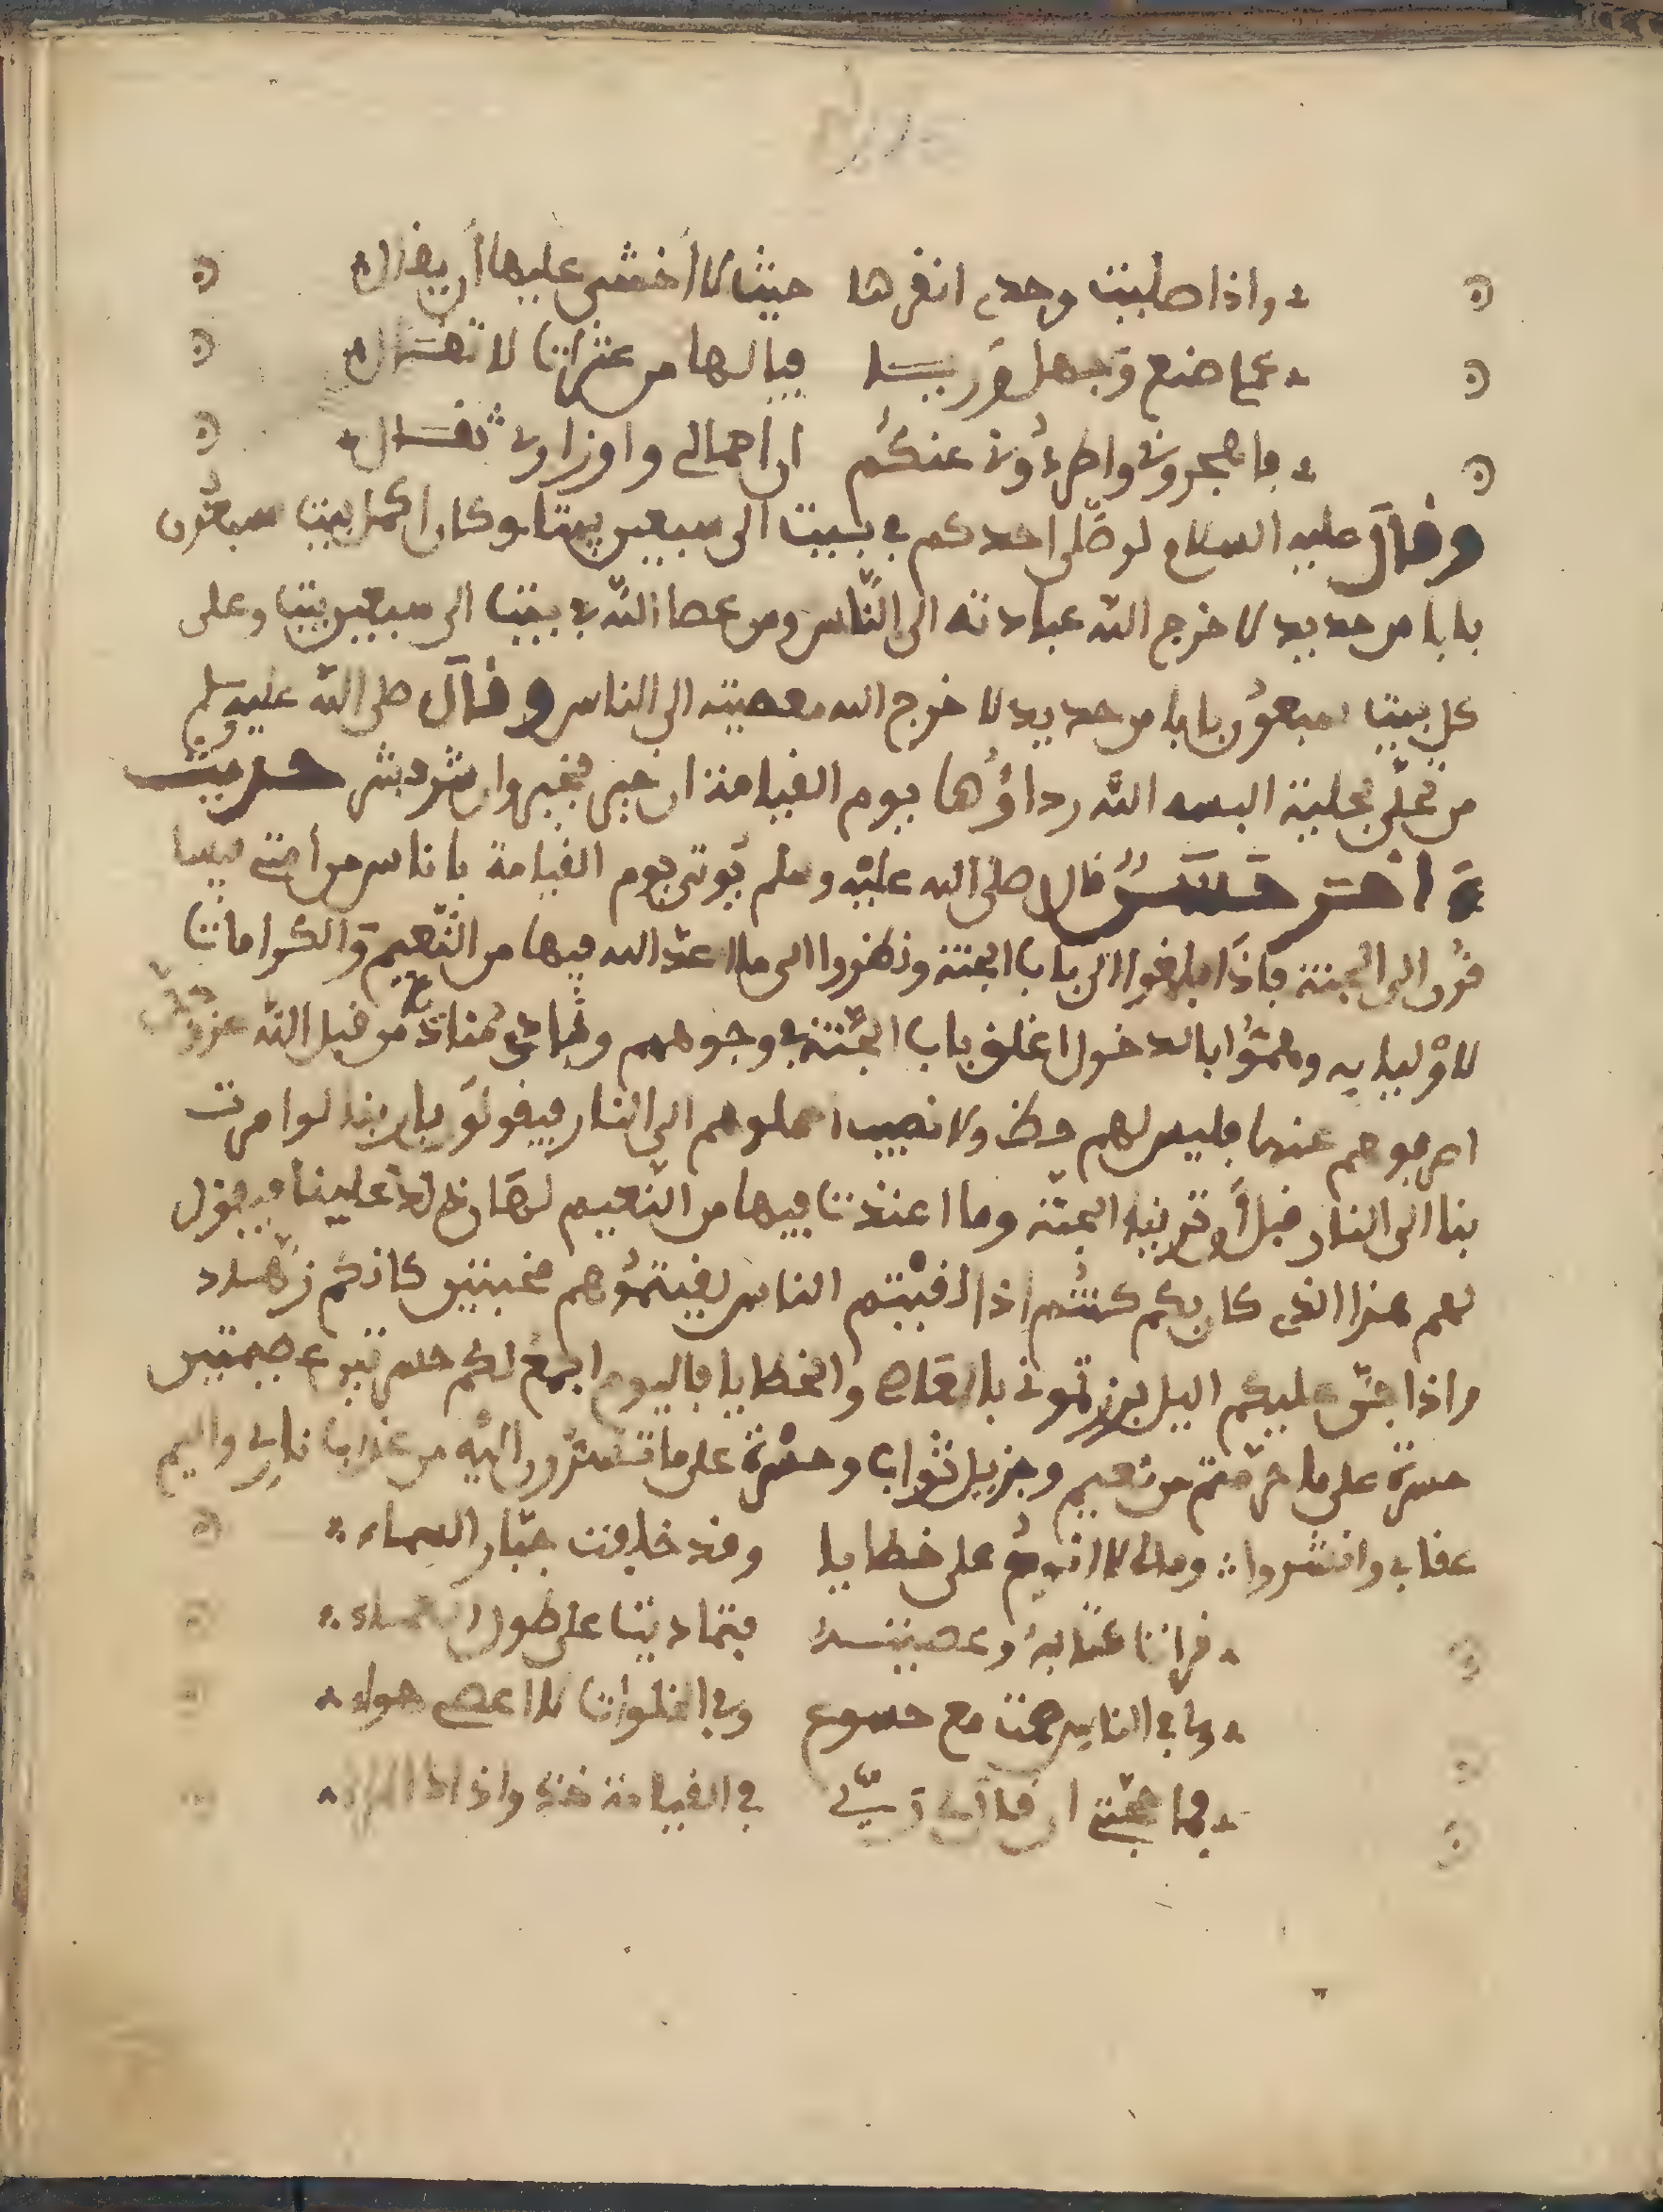 واذا صليت وحدي انقرها حيث لا أخشى عليها أن يقال
عمل ضيع وجهل وريا فيالها من عثرات لا تقال
فاهجروني واطردوني عنكم ان احمالي واوزاري ثقال
وقال عليه السلام لو صلى احدكم في بيت الى سبعين بيتا وكان كل بيت سبعون
بابا من حديد لاخرج الله عبادته الى الناس ومن عصا الله في بيت الى سبعين بيتا وعلى
كل بيت سبعون بابا من حديد لاخرج الله معصيته الى الناس وقال صلى الله عليه وسلم
من تحلى بحلية البسه الله رداؤها يوم القيامة ان خير فخير وان شر فشر حديث
اخر حسن قال صلى الله عليه وسلم يؤتى يوم القيامة باناس من أمتي يسا
قون الى الجنة فاذا بلغوا الى باب الجنة ونظروا الى ما اعد الله فيها من النعيم والكرامات
لاوليايه وهموا بالدخول اغلق باب الجنة في وجوههم ونادى مناد من قبل الله عز وجل
اصرفوهم عنها فليس لهم حظ ولا نصيب احملوهم الى النار فيقولو ياربنا لو امرت
بنا الى النار قبل أن ترينا الجنة وما اعددت فيها من النعيم علينا فيقول
لهم هذا الذي كان بكم كنتم اذا لقيتم الناس لقيتموهم مخبتين كانكم زهاد
واذا جن عليكم اليل بارزتموني بالمعاص والخطايا فاليوم اجمع لكم حسرتين عظيمتين
حسرة على ما حرمتم من نعيم وجزيل ثواب وحسرة على ما من عذاب ناري واليم
عقاب وانشدوا ومالي لا انوح على خطايا وقد خالفت جبار السماء
قرانا كتابه وعصينه فتمادينا على طول
وفي الناس همت مع خسوع وفي الخلوات لا اعصى هواء
فما حجتي ان قال لي ربي في القيامة